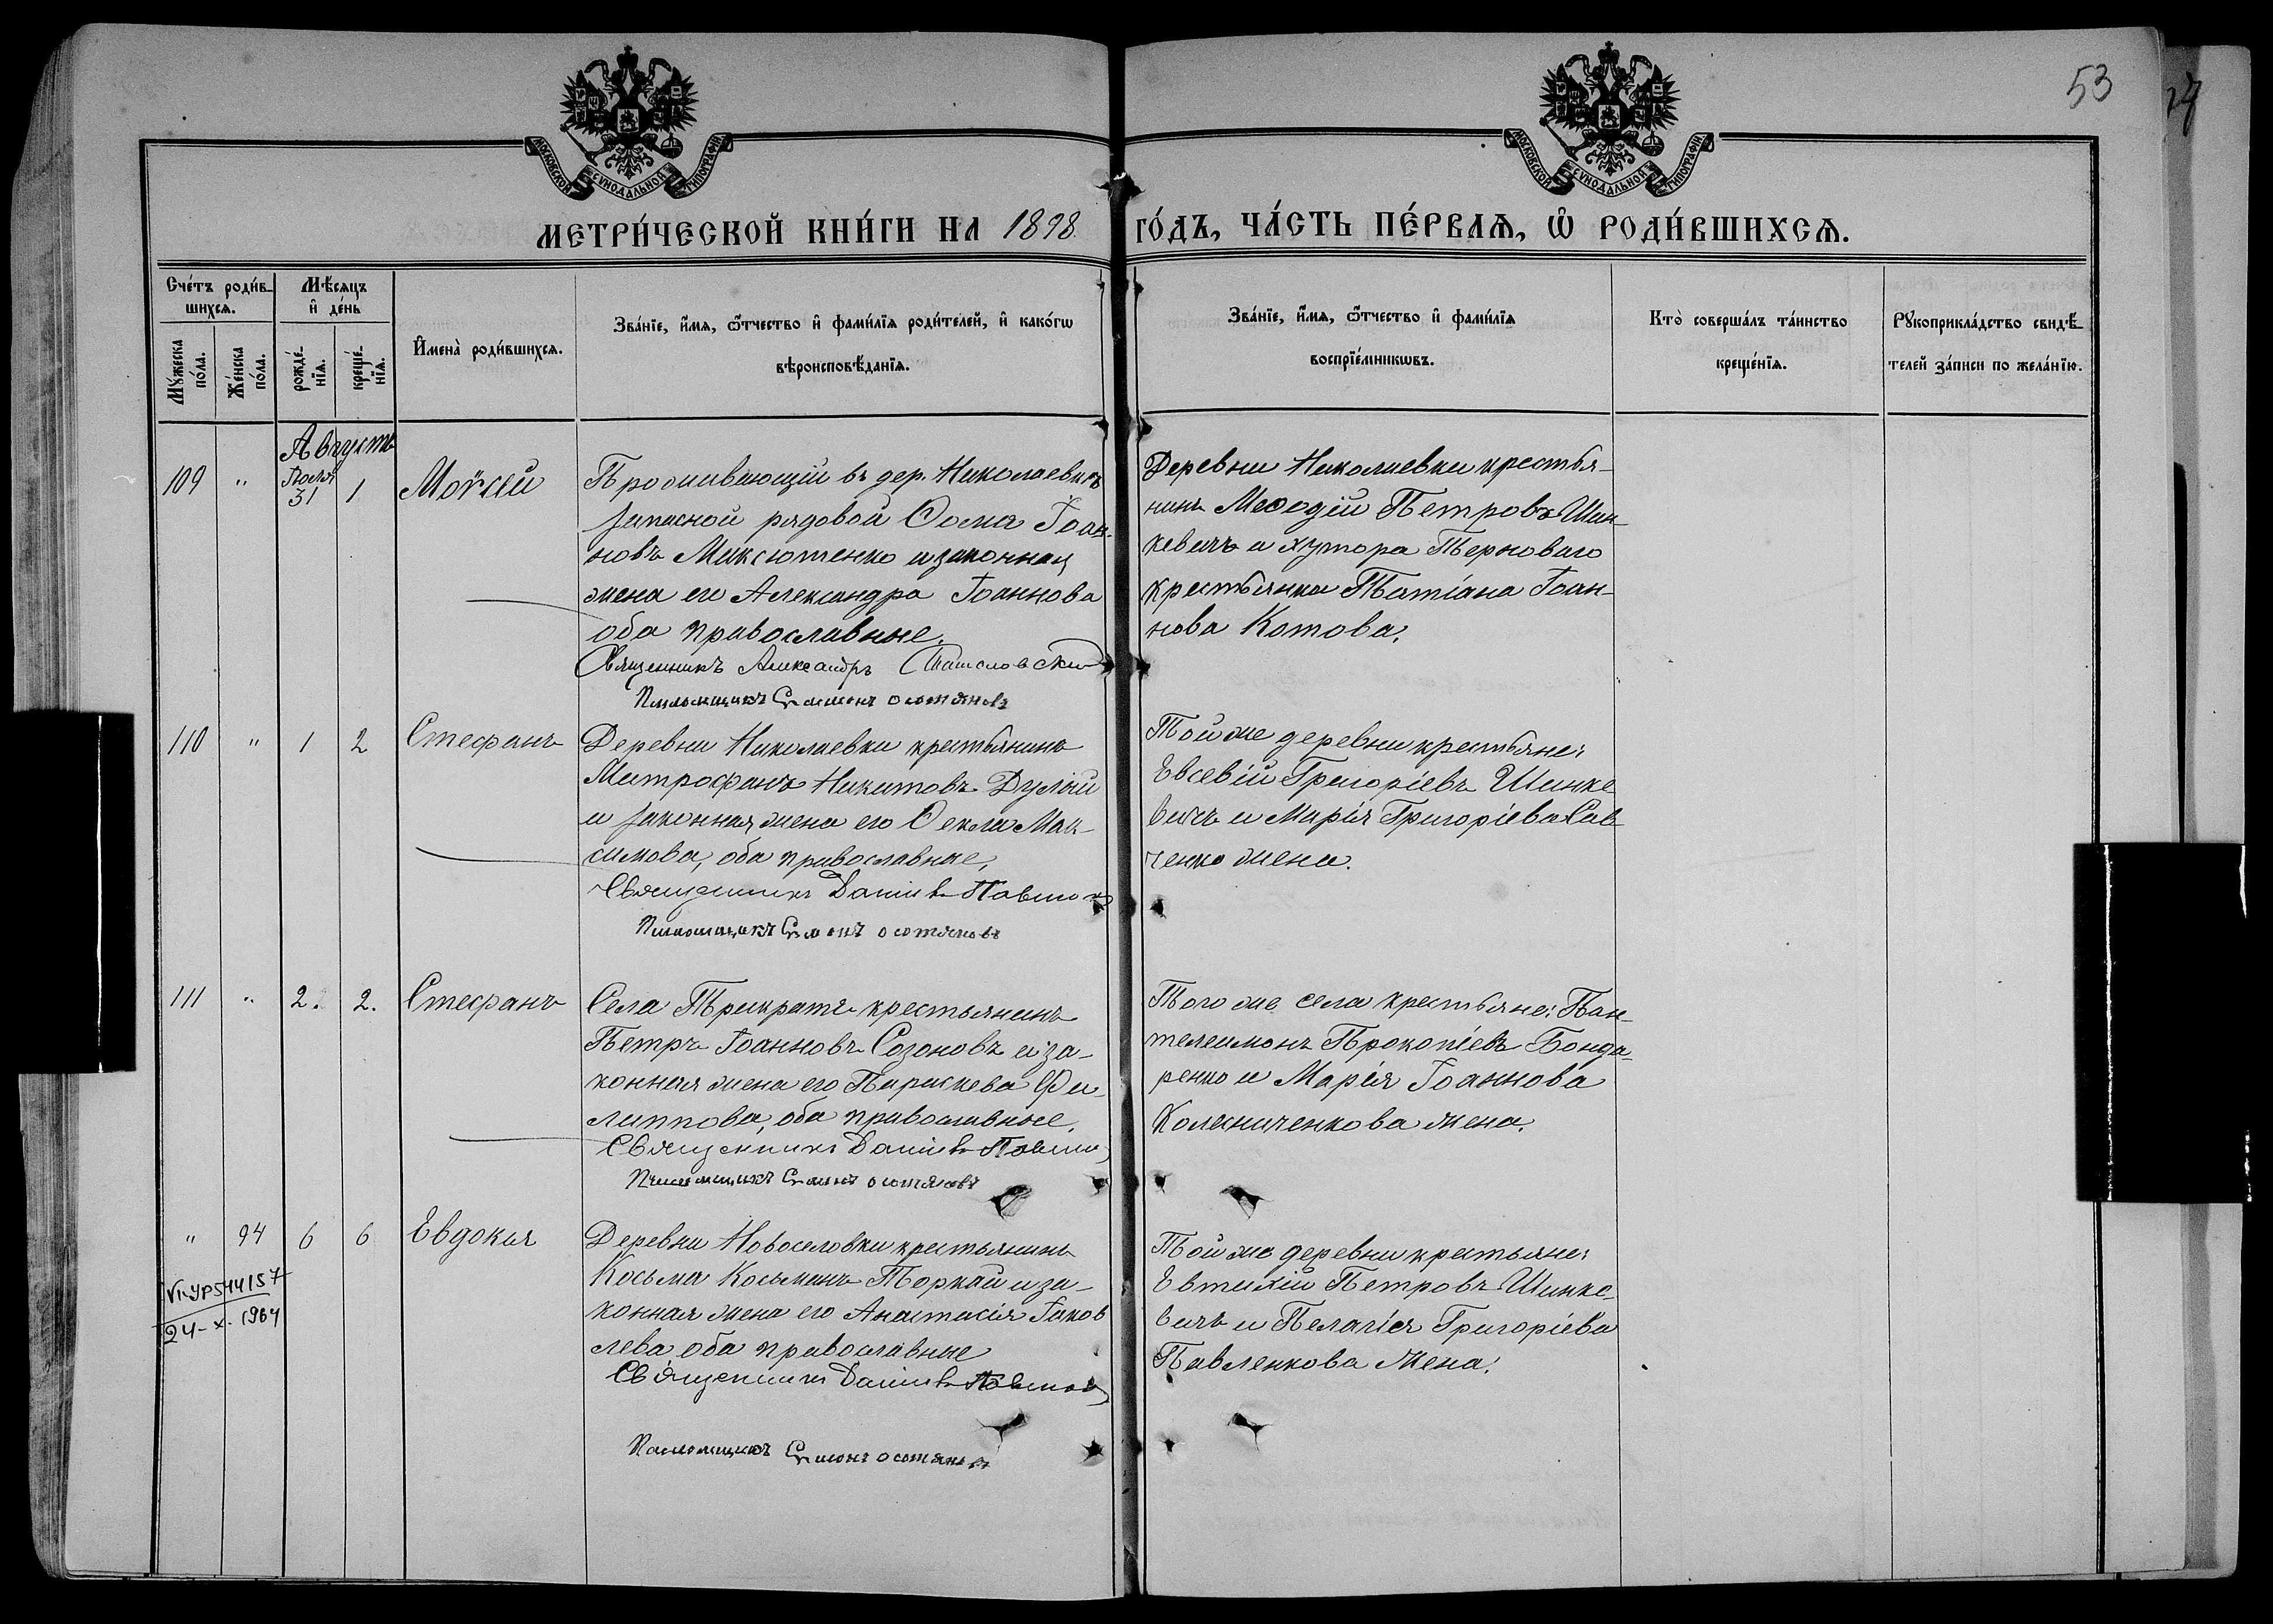 53
МОСКОВСКОЙ СѴНОДАЛЬНОЙ ТИПОГРАФІИ
МОСКОВСКОЙ СѴНОДАЛЬНОЙ ТИПОГРАФІИ
МЕТРИ́ЧЕСКОЙ КНИ́ГИ НА 1898 ГО́ДЪ, ЧА́СТЬ ПЕ́РВАѦ, Ѡ҆ РОДИ́ВШИХСѦ.
Сче́тъ роди́в-
шихсѧ.
Мꙋ́жеска
по́ла.
Же́нска
по́ла.
Мѣ́сѧцъ
и҆ де́нь
рожде́-
нїѧ.
креще́-
нїѧ.
И҆мена̀ роди́вшихсѧ.
Зва́нїе, и҆́мѧ, ѻ҆́тчество и҆ фами́лїѧ роди́телей, и҆ како́гѡ
вѣроисповѣ́данїѧ.
Зва́нїе, и҆́мѧ, ѻ҆́тчество и҆ фами́лїѧ
воспрїе́мникѡвъ.
Кто̀ соверша́лъ та́инство
креще́нїѧ.
Рꙋкоприкла́дство свидѣ́-
телей за́писи по жела́нїю.
Августъ
109 " Іюля 31 1 Моѵсей
Проживающій въ дер. Николаевкѣ
запасной рядовой Ѳома Іоан-
новъ Максютенко и законная
жена его Александра Іоаннова
оба православные.
Священникъ Александръ
Псаломщикъ Симеонъ
Деревни Николаевки крестья-
нинъ Меѳодій Петровъ Шин-
кевичъ и хутора Терноваго
крестьянка Татіана Іоан-
нова Котова.
110 " 1 2 Стефанъ
Деревни Николаевки крестьянинъ
Митрофанъ Никитовъ Дулій
и законная жена его Ѳекла Мак-
симова, оба православные,
Священникъ Даніилъ
Псаломщикъ
Той же деревни крестьяне:
Евсевій Григоріевъ Шинке
вичъ и Марія Григоріева Сав
ченко жена.
111 " 2. 2. Стефанъ
Села Трикратъ крестьянинъ
Петръ Іоанновъ Созоновъ и за-
конная жена его Параскева Фи-
липпова, оба православные.
Священникъ Даніилъ
Псаломщикъ
Того же села крестьяне: Пан-
телеимонъ Прокопіевъ Бонда-
ренко и Марія Іоаннова
Колесниченкова жена.
" 94 6 6 Евдокія
VI-УР 544157
24-X-1964
Деревни Новоселовки крестьянинъ
Косьма Косьминъ Торкай и за-
конная жена его Анастасія Іаков
лева оба православные
Священникъ Даніилъ
Псаломщикъ Симеонъ
Той же деревни крестьяне:
Евтихій Петровъ Шинке-
вичъ и Пелагія Григоріева
Павленкова жена.